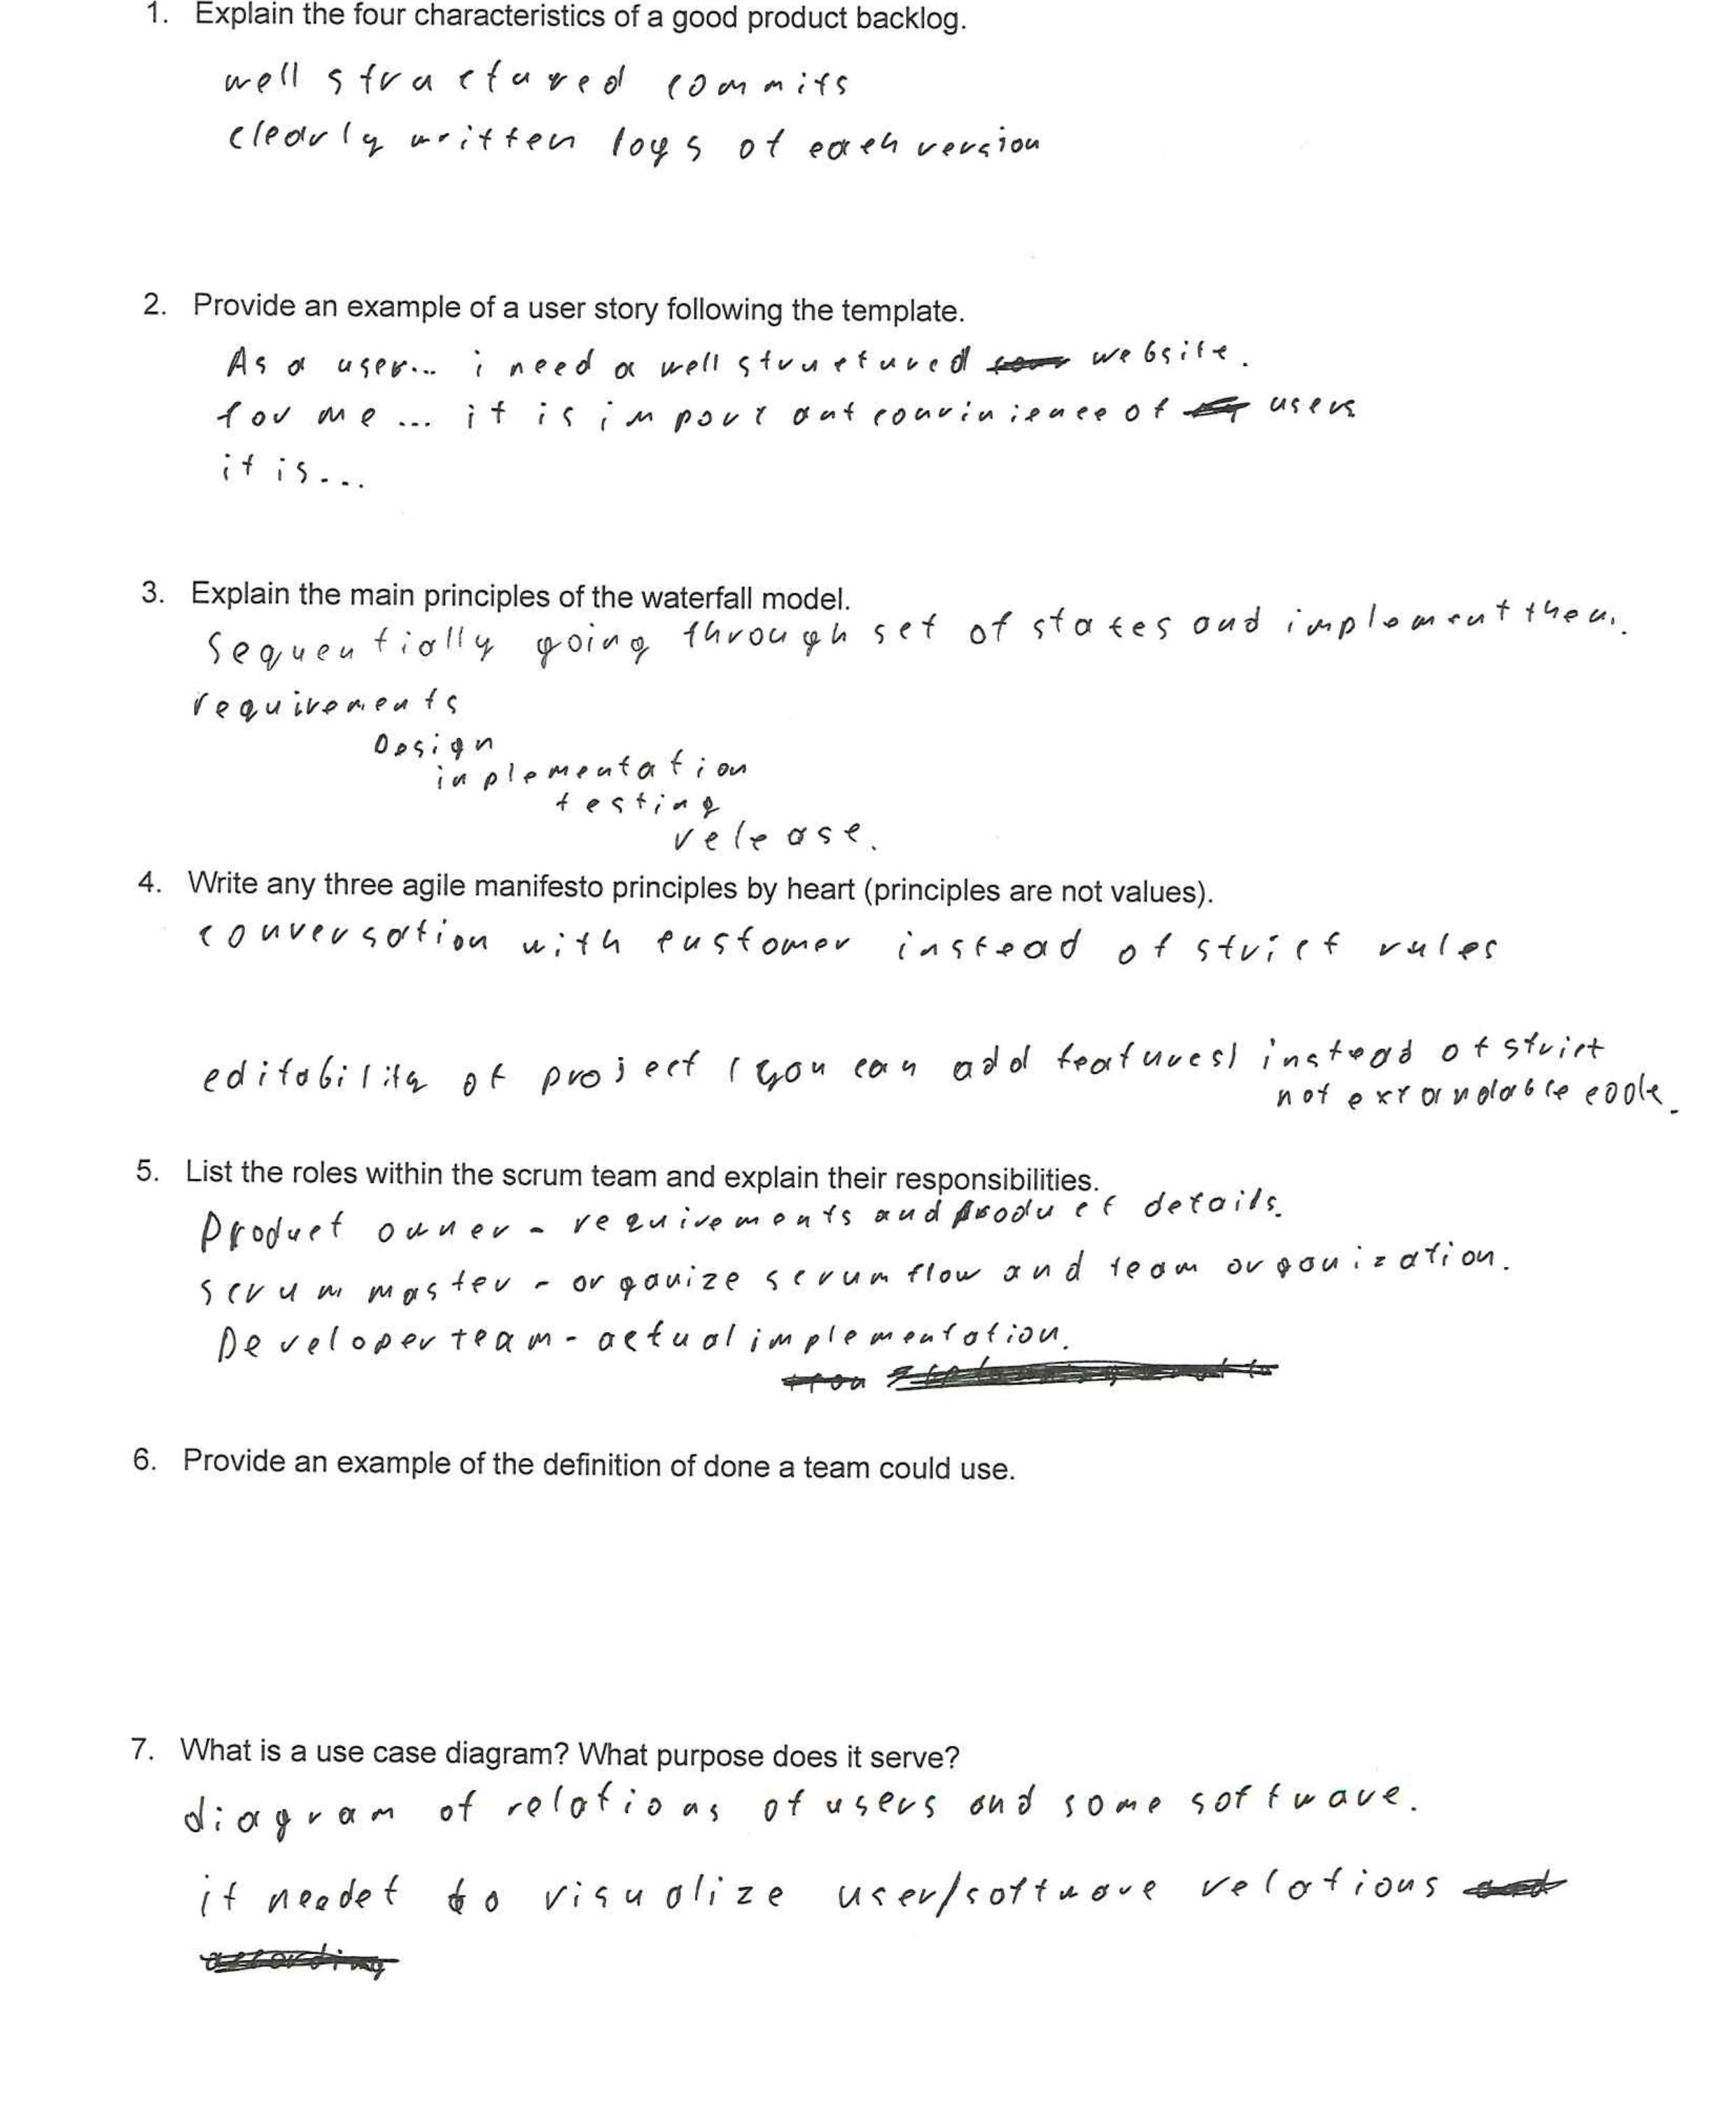 1. Explain the four characteristics of a good product backlog.
well structured commits
clearly written logs of each version
2. Provide an example of a user story following the template.
As a user... i need a well structured website.
for me... it is important convinience of users
it is...
3. Explain the main principles of the waterfall model.
Sequentially going through set of states and implement them.
requirements
Design
implementation
testing
release.
4. Write any three agile manifesto principles by heart (principles are not values).
conversation with customer instead of strict rules
editability of project (you can add features) instead of strict
not extandable code.
5. List the roles within the scrum team and explain their responsibilities.
Product owner - requirements and product details.
Scrum master - organize scrum flow and team organization.
Developer team - actual implementation.
6. Provide an example of the definition of done a team could use.
7. What is a use case diagram? What purpose does it serve?
diagram of relations of users and some software.
it needet to visualize user/software relations